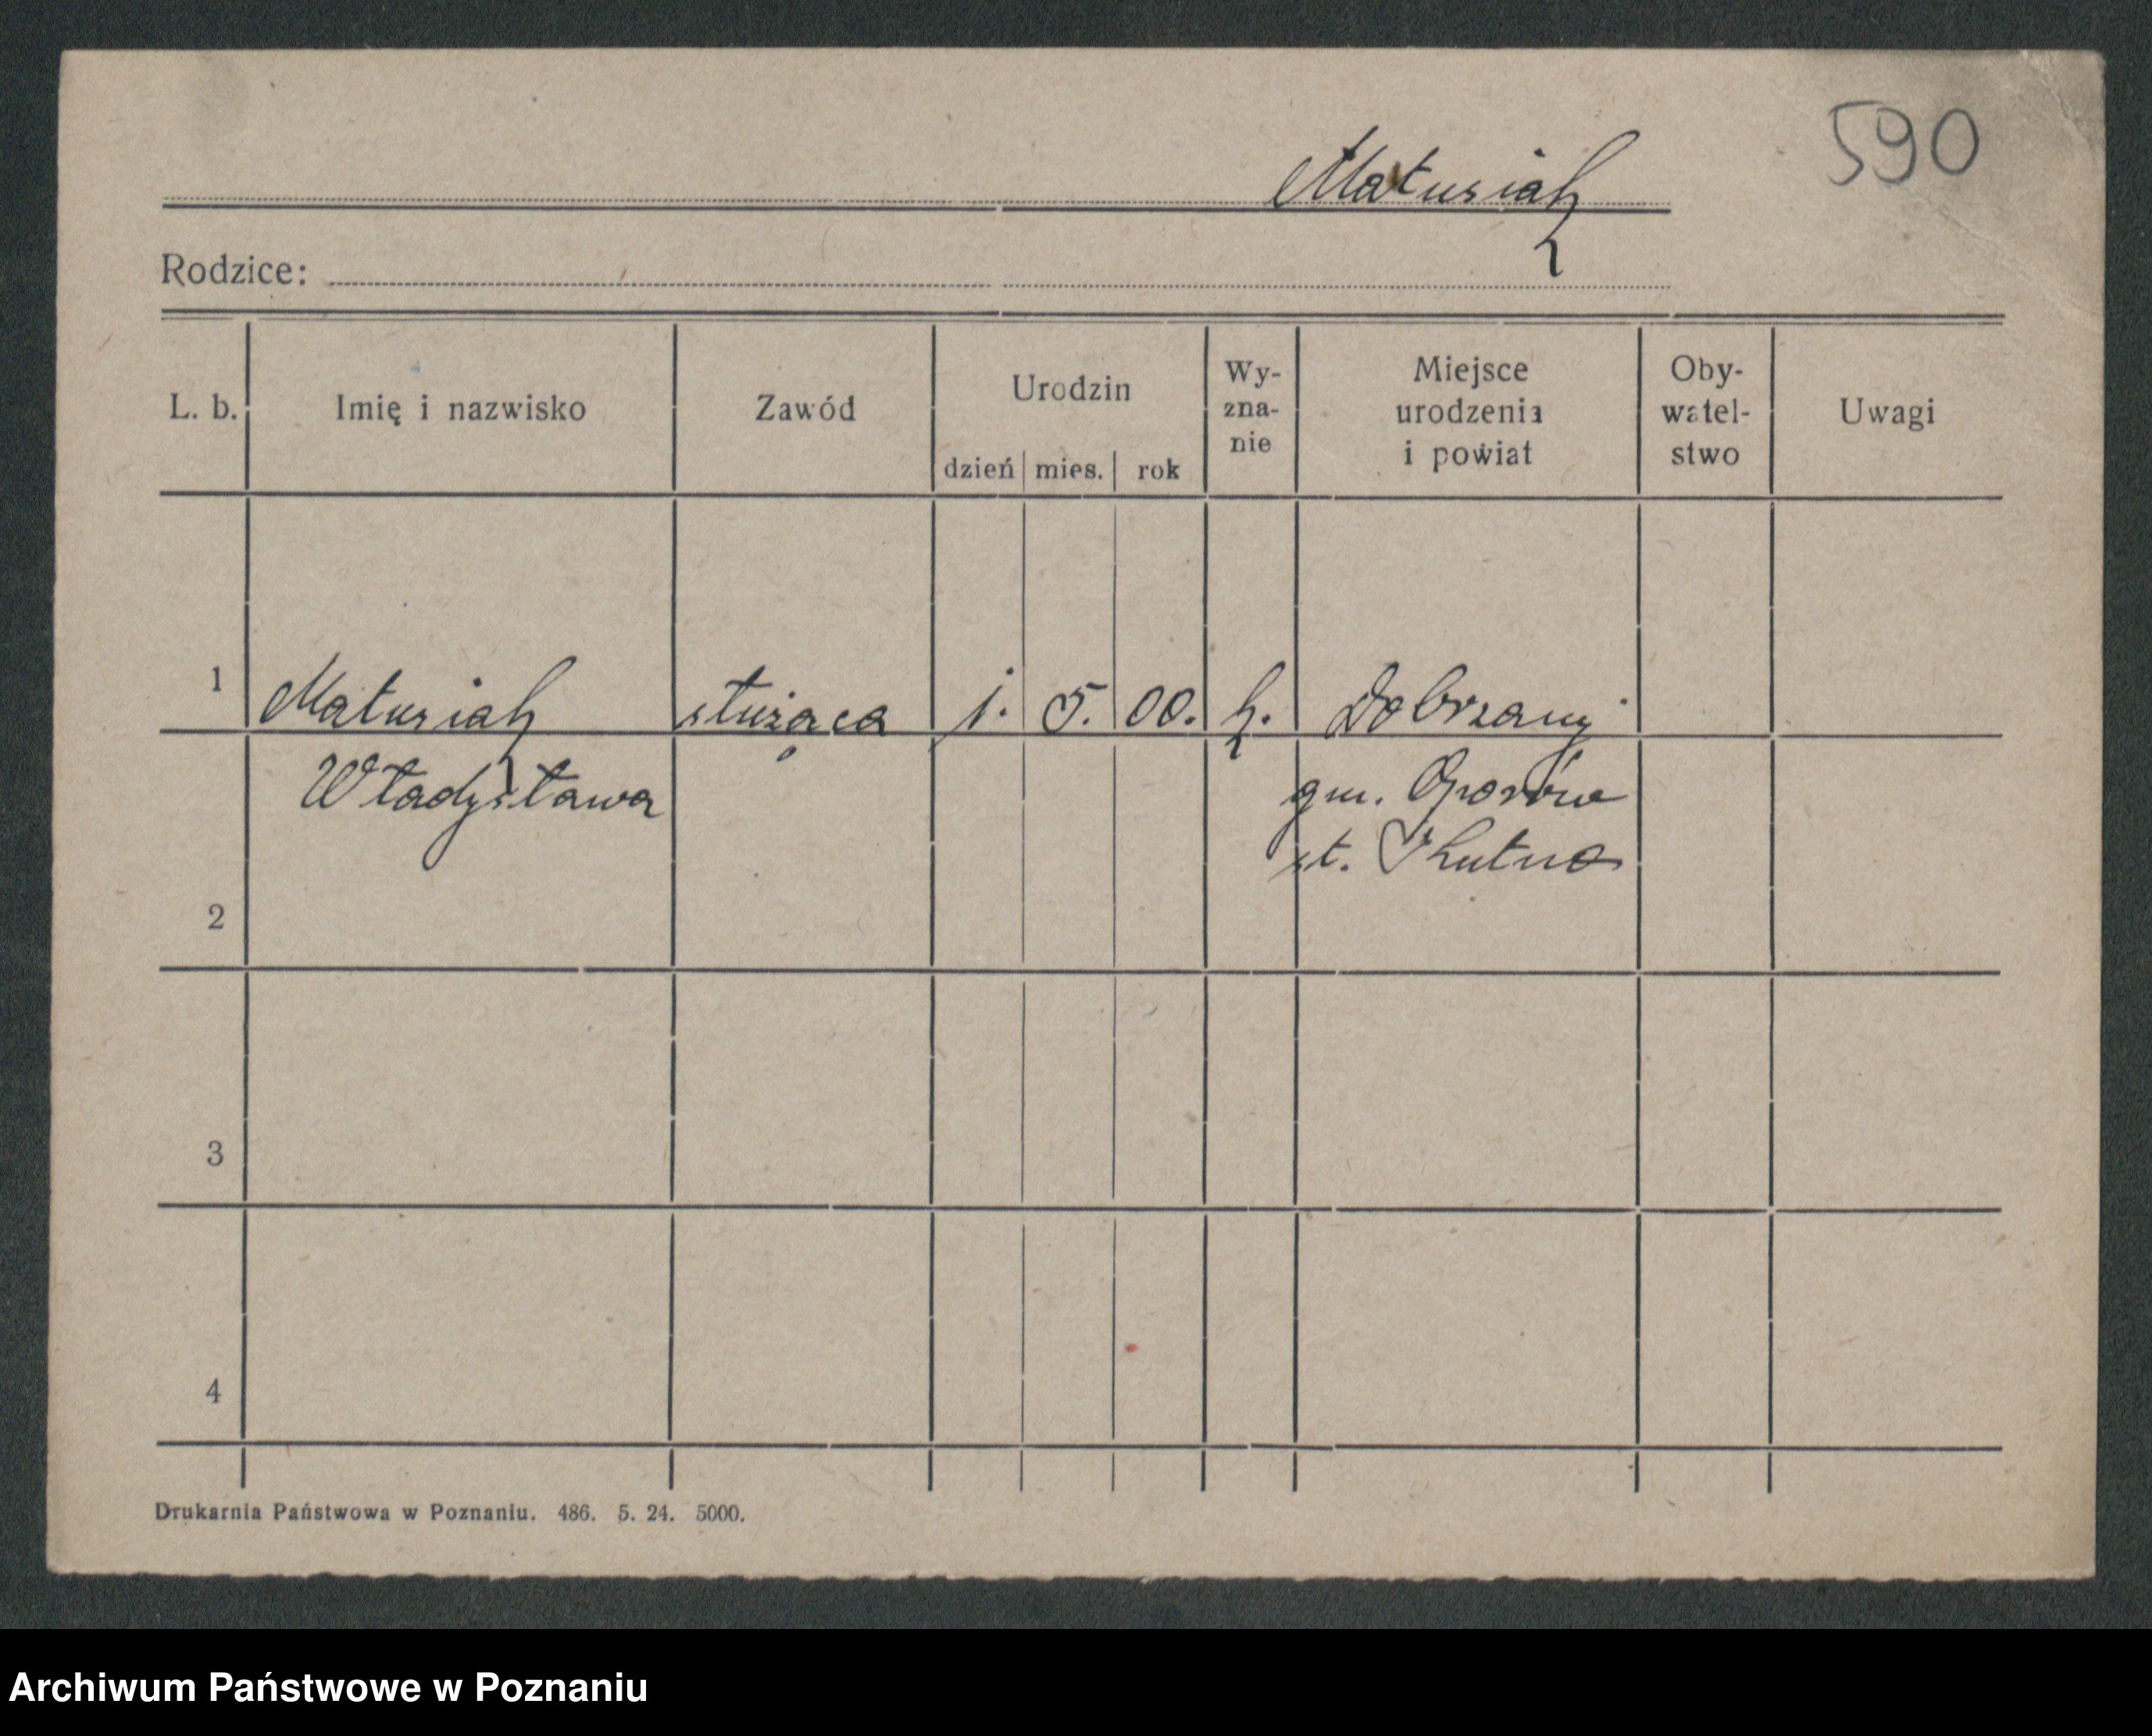 590
Matusiak
Rodzice:
L. b. Imię i nazwisko Zawód Urodzin dzień mies. rok Wy-zna-nie Miejsce urodzenia i powiat Oby-watel-stwo Uwagi
1 Matusiak służąca 1. 5. 00. k. Dobrzany
Władysława gm. Oporów
st. Kutno
2
3
4
Drukarnia Państwowa w Poznaniu. 486. 5. 24. 5000.
Archiwum Państwowe w Poznaniu